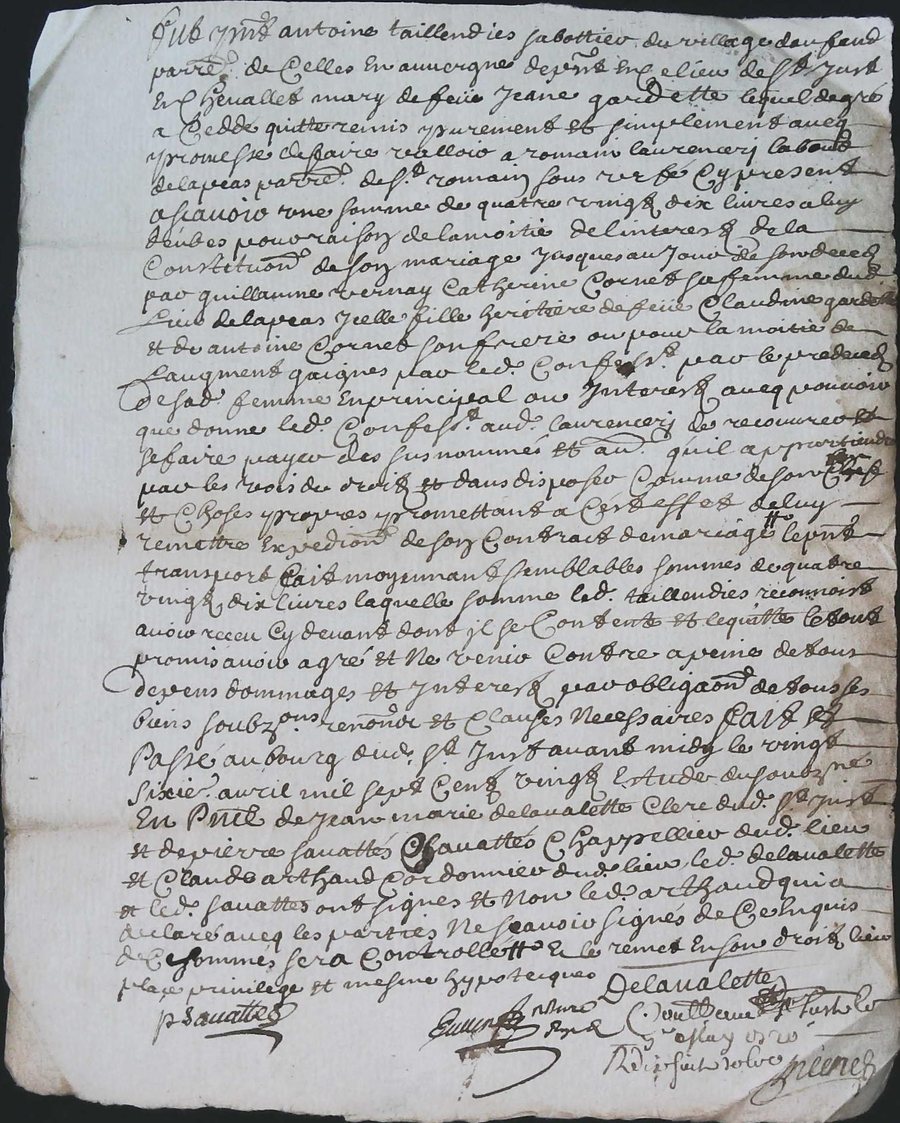 Fut pnt antoine taillendies sabottier du village du fend
parre. de Celles En auvergne depnt En Ce lieu de St Just
En Chevallet mary de feüe Jeane gardette lequel de gre
a Ceddé quitte remis purement et simplement aveq
promesse de faire valloir a romain laurencery labour
delapras parre. de St. romain sous urfé Cy present
ascavoir une somme de quatre vingt dix livres a luy
deubes pour raison de la moitié de linterest de la
Constituon de son mariage Jusques au Jour de son deced
par guillaume vernay Catherine Cornet sa femme dud.
Lieu delapras Icelle fille heritiere de feüe Claudine gardette
et de antoine Cornet son frere ou pour la moitié de
Laugment gaignes par led. Confesst. par le predeced
De sad. femme En principal ou Interest aveq pouvoir
que donne led. Confesst. aud. laurencery de recouvrer et
se faire payer des susnommés et au. qu'il appartiendra
par les vois du droit et dans disposer Comme de son
et Choses propres promettant a Cest effet de luy
remettre Expedion de son Contract de mariage le pnt
transport fait moyennant semblables sommes de quatre
vingt dix livres laquelle somme led. taillendies reconnoist
avoir receu Cy devant dont il se Contente et le quitte le tout
promis avoir agré et Ne venir Contre a peine de tous
depens dommages et Interest par obligaon de tous ses
biens soubzons renonon et Clauses Necessaires fait et
Passé au bourg dud. St Just avant midy le vingt
Sixie. avril mil sept Cent vingt Estude du soubzné
En Pnce de Jean marie delavalette Clerc dud. St Just
et de pierre savattés Chappellier dud. lieu
et Claude arthaud Cordonnier dud. lieu led. delavalette
et led. savattes ont signes et Non led. arthaud qui a
declaré aveq les parties Ne scavoir signés de Ce Enquis
de Ce sommes sera Controllé Et le remet En son droit lieu
place privilege et mesme hypotecques
Delavalette
pSavattes